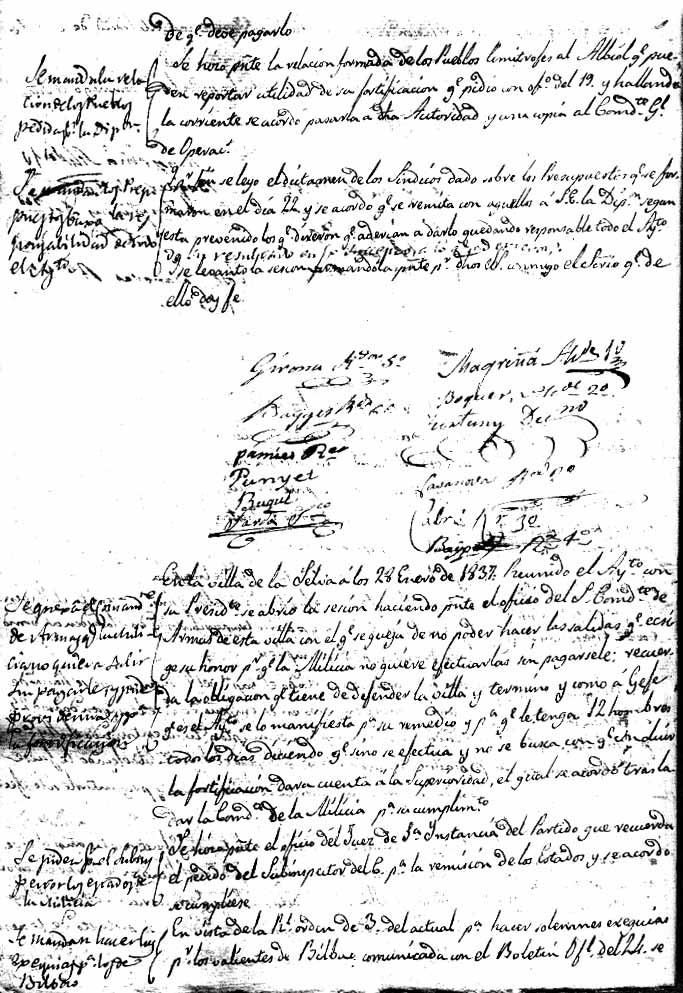 de q.e deve pagarlo
Se mandala rela
cion de los Pueblos
pedida p.r la Dip.on
Se hizo p.nte la relacion formada de los Pueblos limitrofes al Albiol q.e pue-
den reportar utilidad de su fortificacion q.e pidio con of.o del 19. y hallandо
la corriente se acordo pasarla a dha Autoridad y una copia al Comd.te G.l
de Operac.s
ponsabilidad de todo
el Ay.to
se leyo el dictamen de los Sindicos dado sobre los Presupuestos q.e se for-
maron en el dia 22 y se acordo q.e se remita con aquellos á S.E. la Dip.n segun
esta prevenido los q.e dixeron q.e adevian a darlo quedando responsable todo el Ay.to
Y se levanto la sesion firmandola p.nte p.r dhos conmigo el Sec.rio q.e de
ello doy fe
Girona R.dor 5.o
Magriñá Al.de 1.o
Boquer, Al.de 2.o
Pamies R.or
Punyet
Buqui
Casanova
Cabré R.r 3.o
R.or 4.o
En la villa de la Selva á los 28 Enero de 1837. Reunido el Ay.to con
su Presid.te se abrio la sesion haciendo p.nte el oficio del S.r Comd.te de
Armas de esta villa con el q.e se queja de no poder hacer las salidas q.e ecsi-
ge su honor p.r q.e la Milicia no quiere efectuarlas sin pagarsele; recuer-
da la obligacion q.e tiene de defender la villa y termino y como á Gefe
q.e es el Ay.to se lo manifiesta p.a su remedio y p.a q.e le tenga 12 hombres
todos los dias diciendo q.e sino se efectua y no se busca con q.e concluir
la fortificacion dara cuenta á la Superioridad, el qual se acordó trasla
dar la Comd.a de la Milicia p.a su cumplim.to
Se queja el Comand
de Armas q.e la mili
cia no quiere salir
sin pagarle y pide
Se hizo p.nte el oficio del Juez de 1.a Instancia del Partido que recuerda
el pedido del Subinspector del C. p.a la remision de los Estados y se acordo
se cumpliese
Se piden p.r el Subins
pector los estados de
la Milicia
En vista de la R.l orden de 3. del actual p.a hacer solemnes exequias
p.r los valientes de Bilbao, comunicada con el Boletin Of.l del 24. se
Se mandan hacer las
exequias p.r los de
Bilbao